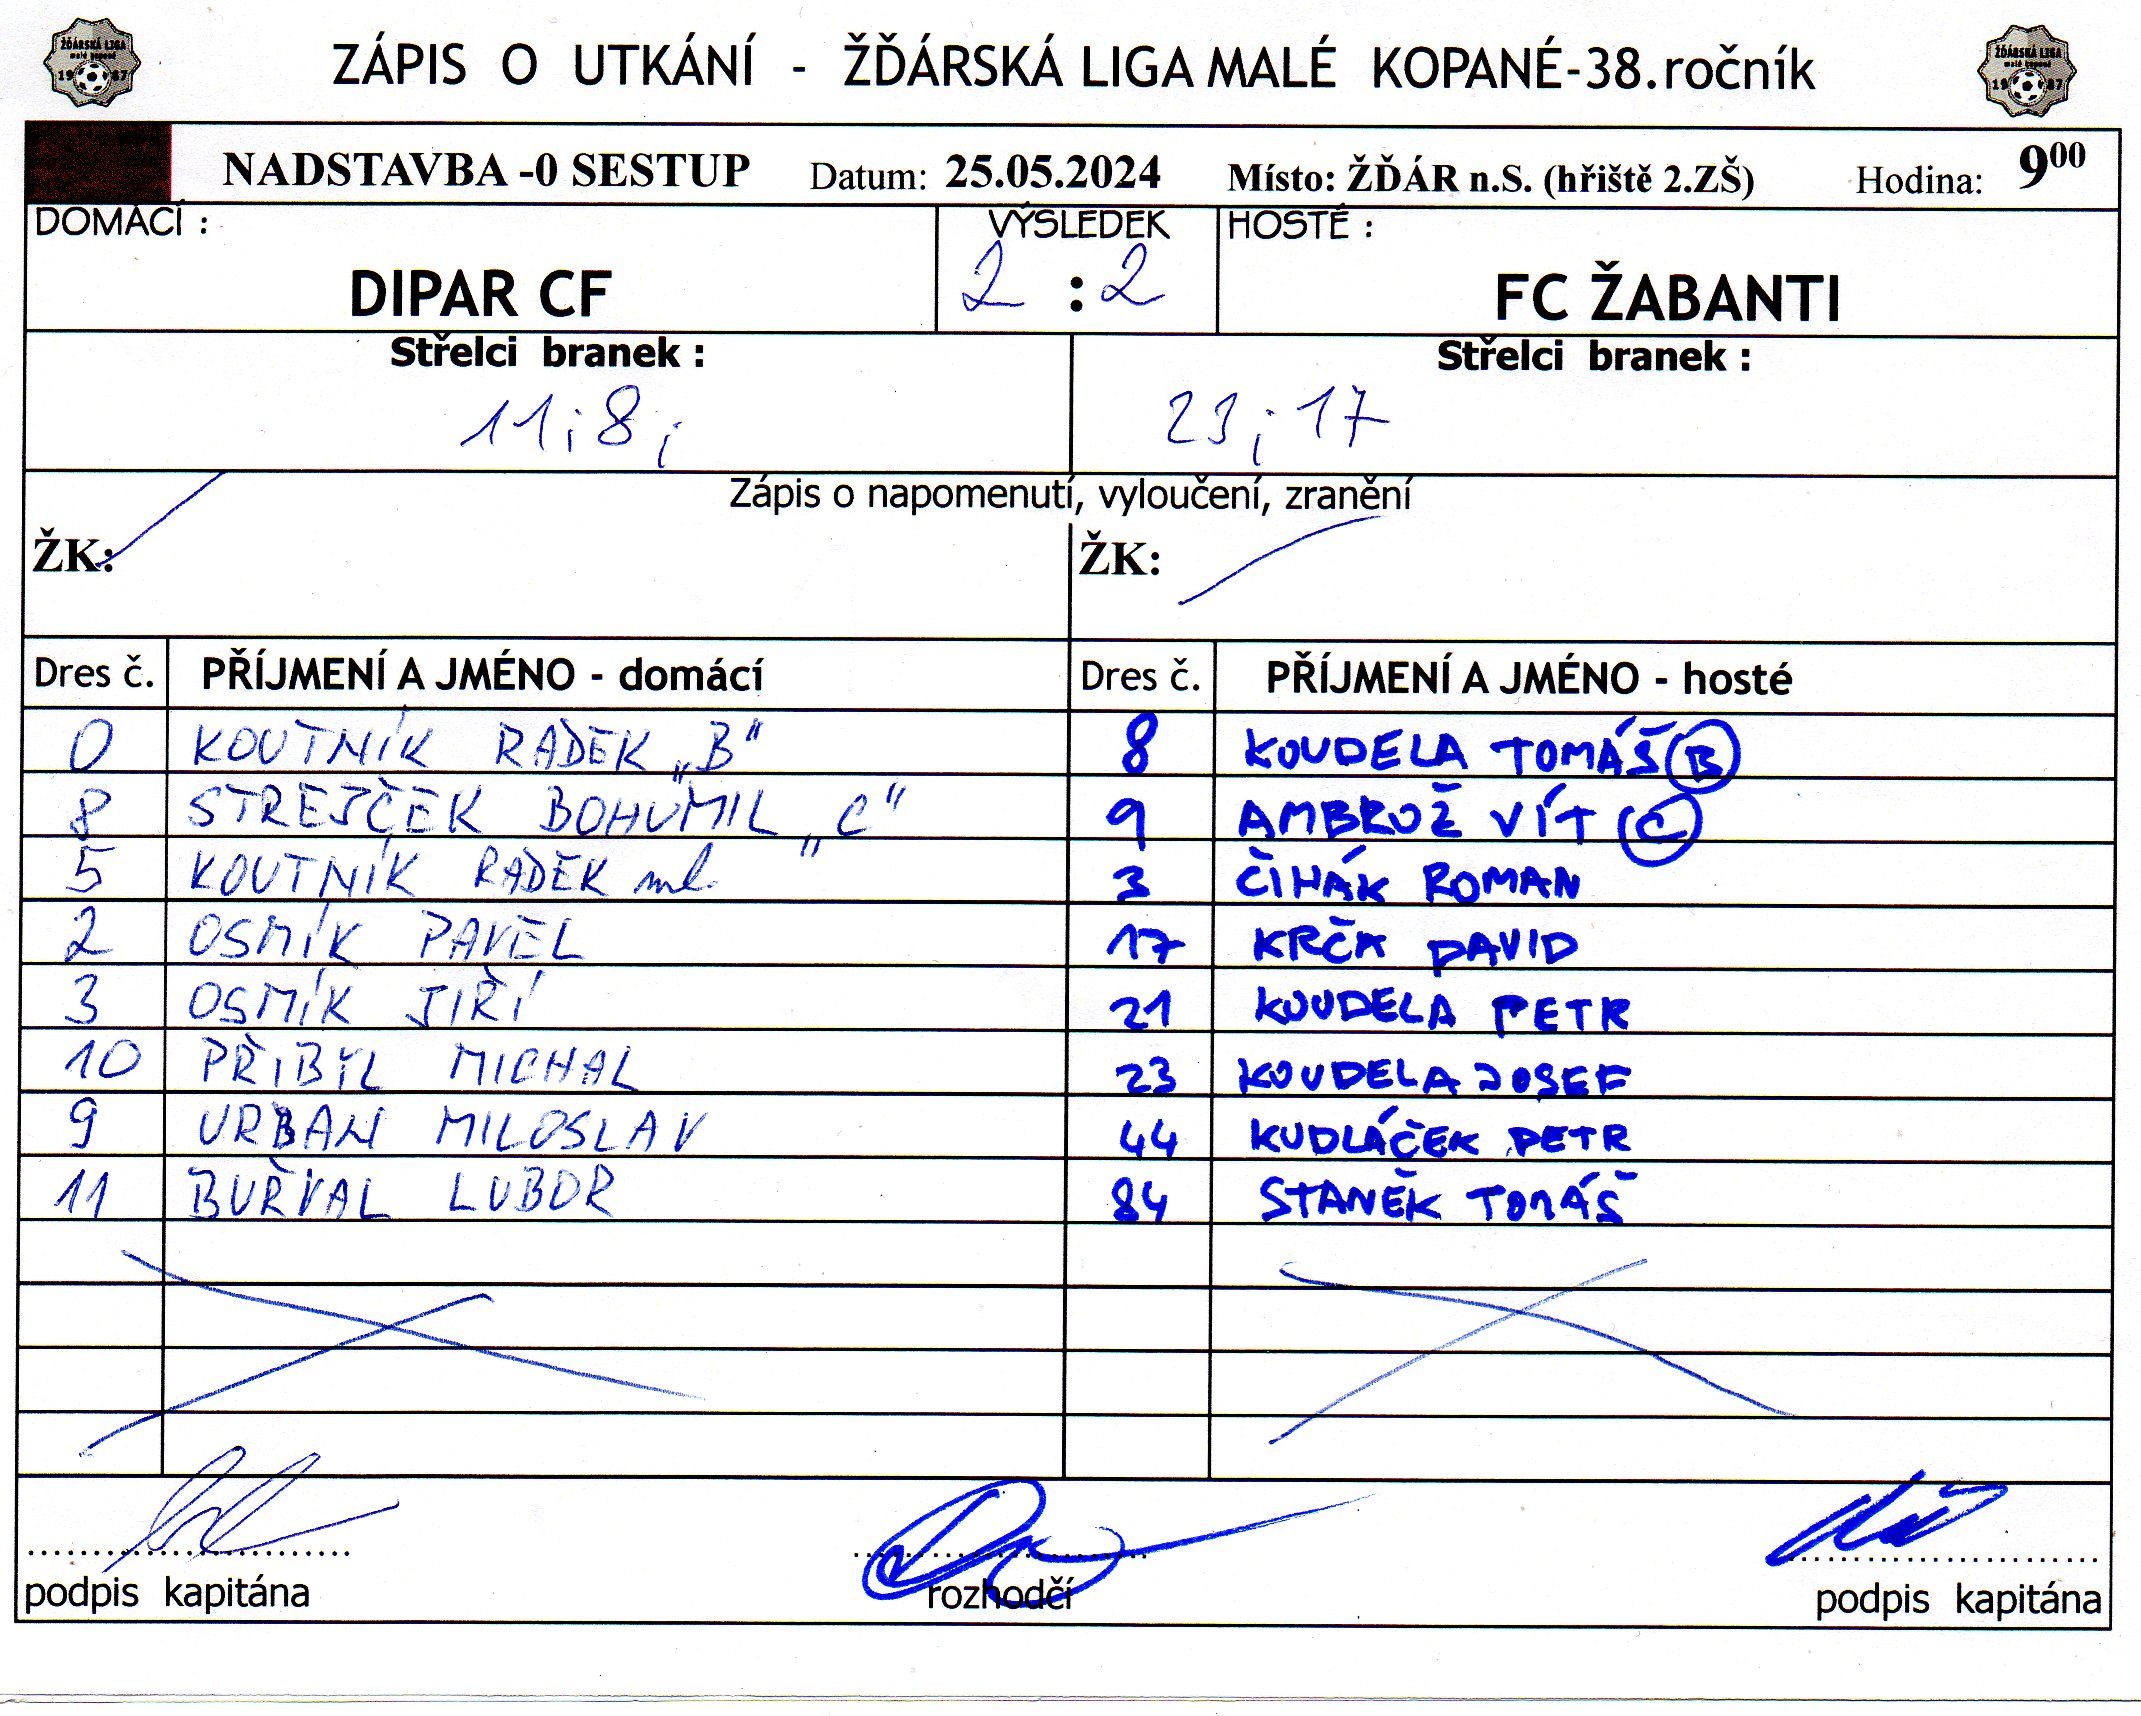 ŽĎÁRSKÁ LIGA
malé kopané
1987
ZÁPIS O UTKÁNÍ - ŽĎÁRSKÁ LIGA MALÉ KOPANÉ-38.ročník
ŽĎÁRSKÁ LIGA
malé kopané
1987
NADSTAVBA -0 SESTUP Datum: 25.05.2024 Místo: ŽĎÁR n.S. (hřiště 2.ZŠ) Hodina: 9⁰⁰
DOMÁCÍ : VÝSLEDEK HOSTÉ :
DIPAR CF 2 : 2 FC ŽABANTI
Střelci branek : Střelci branek :
11; 8; 23; 17
Zápis o napomenutí, vyloučení, zranění
ŽK: ŽK:
Dres č. PŘÍJMENÍ A JMÉNO - domácí Dres č. PŘÍJMENÍ A JMÉNO - hosté
0 KOUTNÍK RADEK „B" 8 KOUDELA TOMÁŠ B
8 STREJČEK BOHUMIL „C" 9 AMBROŽ VÍT C
5 KOUTNÍK RADEK ml. 3 ČIHÁK ROMAN
2 OSMÍK PAVEL 17 KRČA DAVID
3 OSMÍK JIŘÍ 21 KOUDELA PETR
10 PŘIBYL MICHAL 23 KOUDELA JOSEF
9 URBAN MILOSLAV 44 KUDLÁČEK PETR
11 BUŘVAL LUBOR 84 STANĚK TOMÁŠ
podpis kapitána rozhodčí podpis kapitána